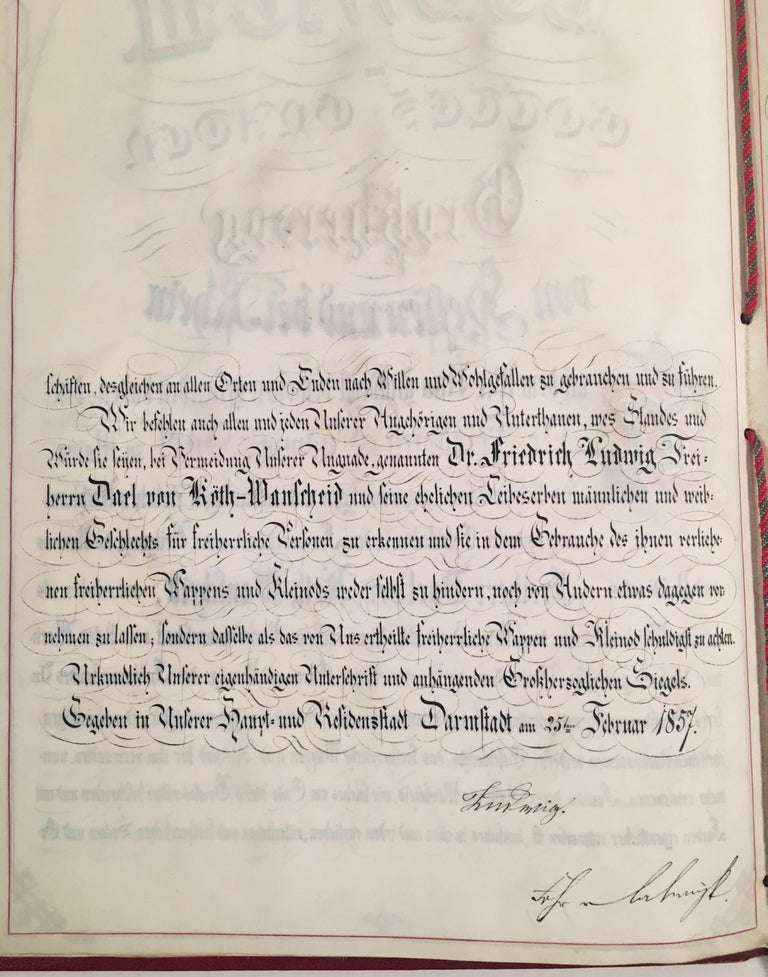 schäften, desgleichen an allen Orten und Enden nach Willen und Wohlgefallen zu gebrauchen und zu führen.
Wir befehlen auch allen und jeden Unserer Angehörigen und Unterthanen, wes Standes und
Würde sie seyen, bei Vermeidung Unserer Ungnade, genannten Dr. Friedrich Ludwig Frei-
herrn Dael von Köth-Wanscheid und seine ehelichen Leibeserben männlichen und weib-
lichen Geschlechts für freiherrliche Personen zu erkennen und sie in dem Gebrauche des ihnen verliehe-
nen freiherrlichen Wappens und Kleinods weder selbst zu hindern, noch von Andern etwas dagegen vor-
nehmen zu lassen; sondern dasselbe als das von Uns ertheilte freiherrliche Wappen und Kleinod schuldigst zu achten.
Urkundlich Unserer eigenhändigen Unterschrift und anhängenden Großherzoglichen Siegels.
Gegeben in Unserer Haupt- und Residenzstadt Darmstadt am 25ten Februar 1857.
Ludwig.